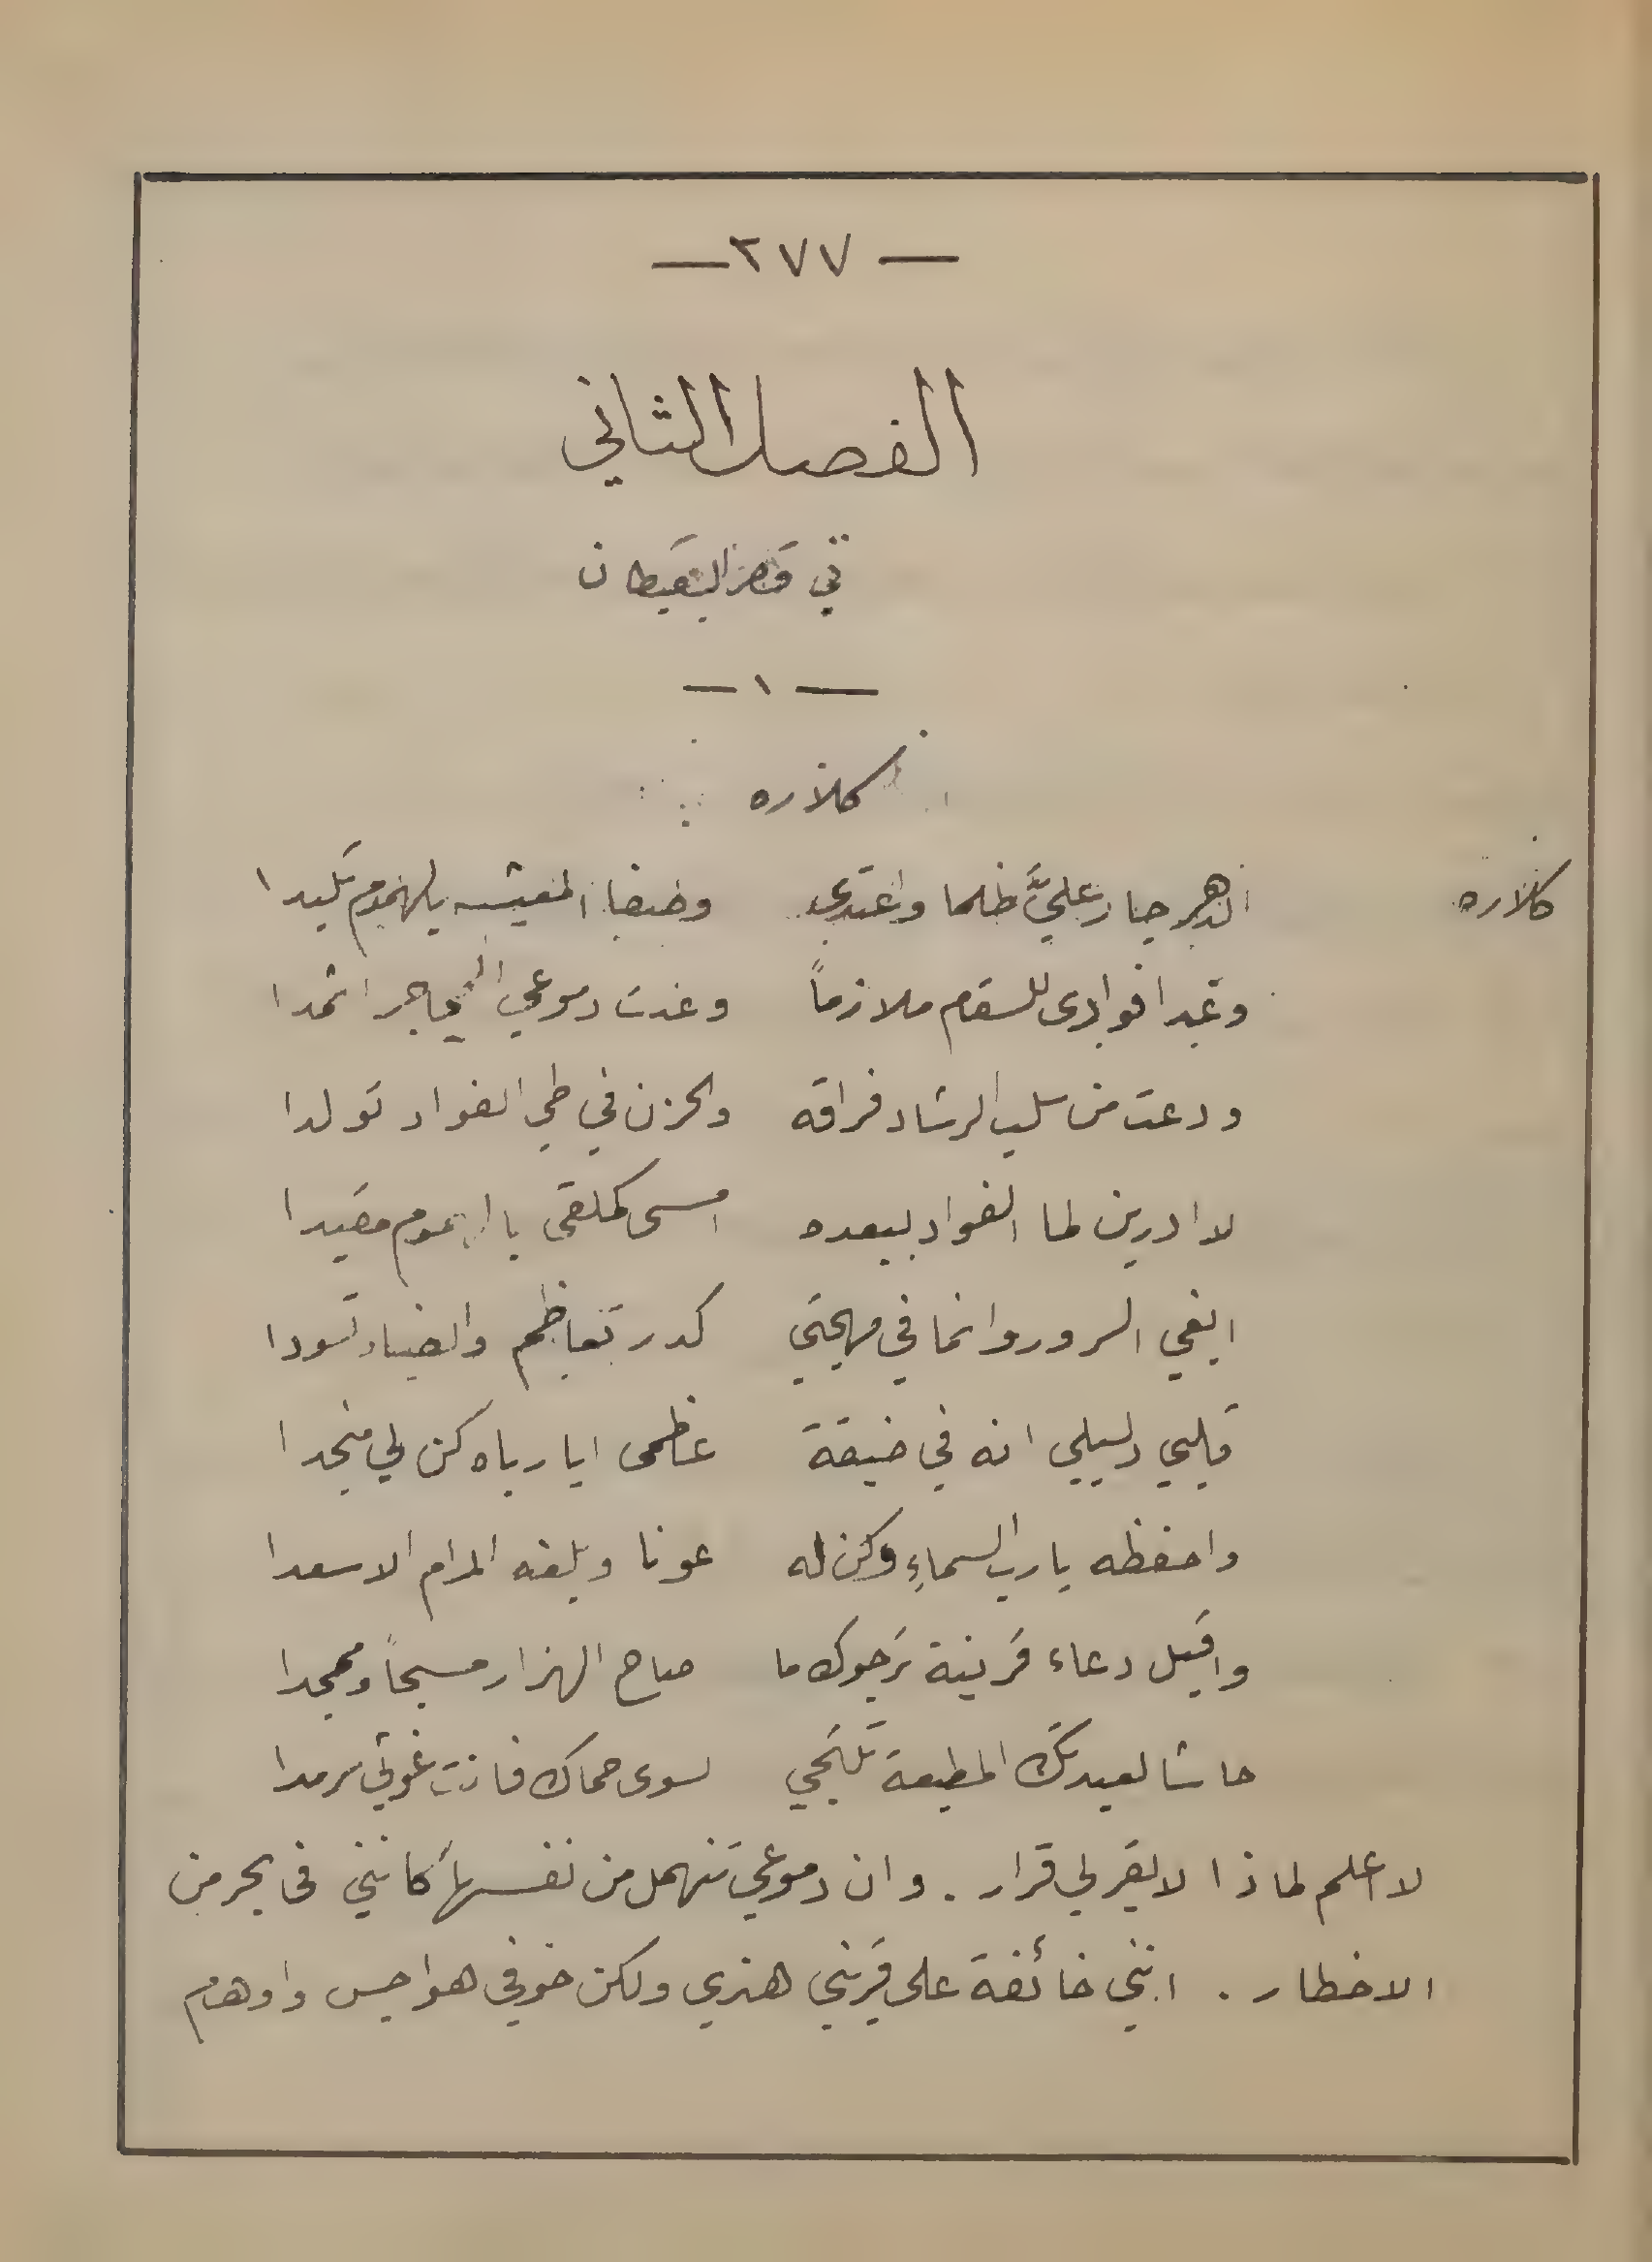 — ٢٧٧ —
الفصل الثاني
في قصر القبطان
— ١ —
كلاره
كلاره الدهر جار عليَّ ظلما واعتدى وصفا المعيشه بالهموم تكبدا
وغدا فوادى للسقام ملازماً وغدت دموعي المحاجر اثمدا
ودعت من سلب الرشاد فراقه والحزن في طي الفواد تولدا
لا ادرين لما الفواد لبعده امسى كملقى بالهموم مقيدا
ابغي السرور وانما في مهجتي كدر تعاظم والضياء تسودا
قلبي دليلي انه في ضيقة عظمى ايا رباه كن لي منجدا
واحفظه يارب السماءِ وكن له عونا وبلغه المرام الاسعدا
واقبل دعاء قرينة ترجوك ما صاح الهزار مسبحاً وممجدا
حاشا لعبدتك المطيعة تلتجي لسوى حماك فانت غوثي سرمدا
لا اعلم لماذا لا يقر لي قرار . وان دموعي تنهمل من نفسها كانني فى بحر من
الاخطار . انني خائفة على قريني هنري ولكن خوفي هواجس واوهام